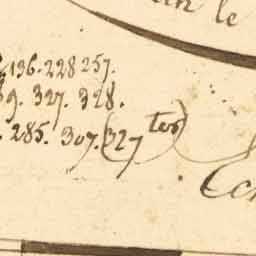 le
136. 228 257.
9. 327. 328.
. 285. 307. (327 ter)